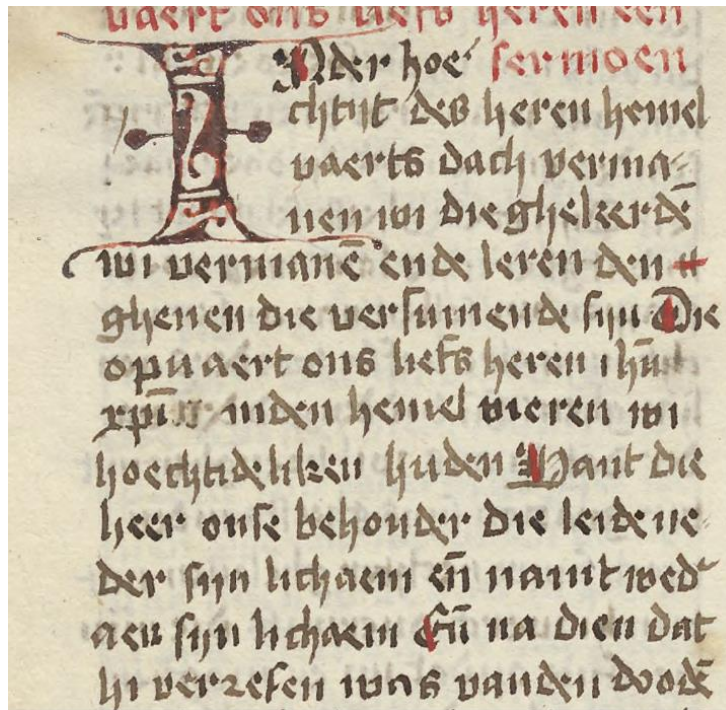 vaert ons liefs heren een
IN der hoe sermoen
chtijt des heren hemel
vaerts dach verma-
nen wi die ghekeerdē
wi vermanē ende leren den
ghenen die versumende sijn Die
opuaert ons liefs heren ihū
xp̄i inden hemel vieren wi
hoechtideliken huden Want die
heer onse behouder die leide ne-
der sijn lichaem eñ namt wed'
aen sijn lichaem Eñ na dien dat
hi verresen was vanden doodē